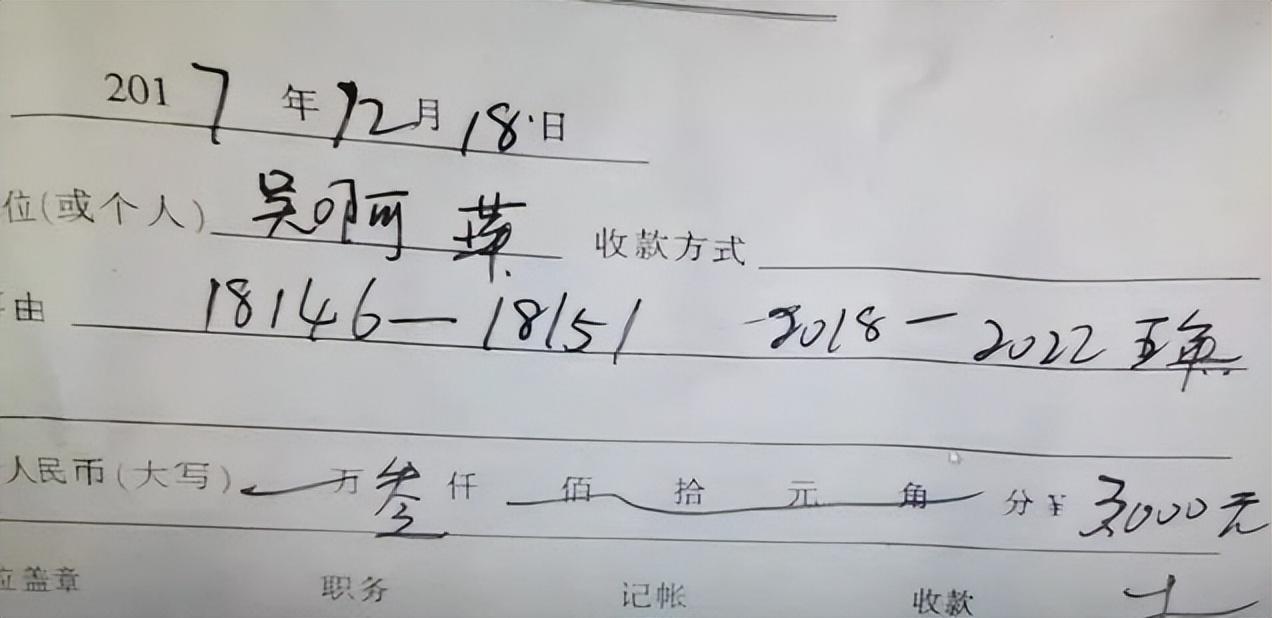 2017年12月18日
位(或个人) 吴阿萍 收款方式
由 18146—18151 2018—2022 五年
人民币(大写) 万叁仟 佰 拾 元 角 分¥ 3000元
盖章 职务 记帐 收款